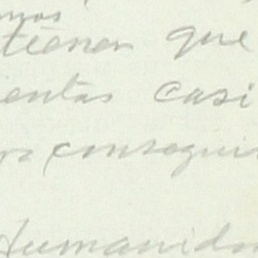 tienen que
entas casi
conseguir
Humanida